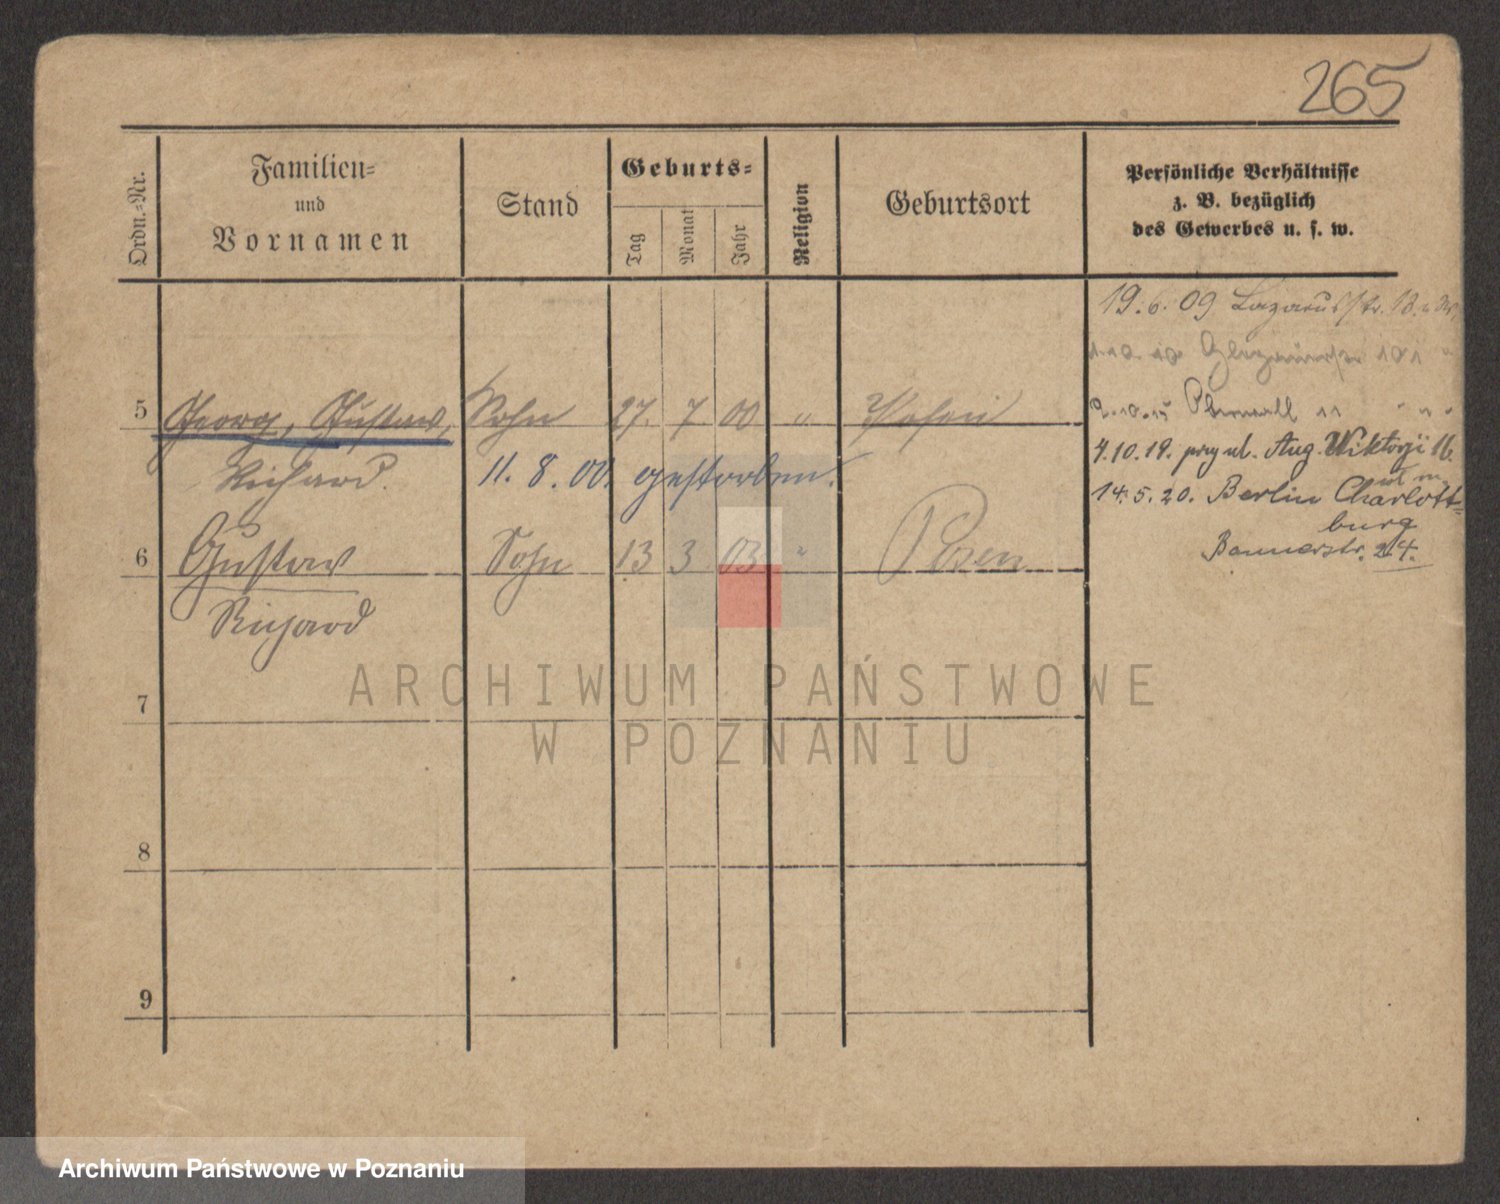 265
Ordn.-Nr.
Familien-
und
Vornamen
Stand
Geburts-
Tag
Monat
Jahr
Religion
Geburtsort
Persönliche Verhältnisse
z. B. bezüglich
des Gewerbes u. s. w.
19.6.09 Lazarusstr. 13.
101
5 Georg, Gustav, Sohn 27. 7. 00 " Posen
2.10.15 11 " " "
Richard. 11. 8. 00. gestorben.
4.10.19. przy ul. Aug. Wiktorji 16.
14.5.20. Berlin Charlott=
burg
6 Gustav Sohn 13 3 03 " Posen
24.
Richard
7
8
9
ARCHIWUM PAŃSTWOWE
W POZNANIU
Archiwum Państwowe w Poznaniu